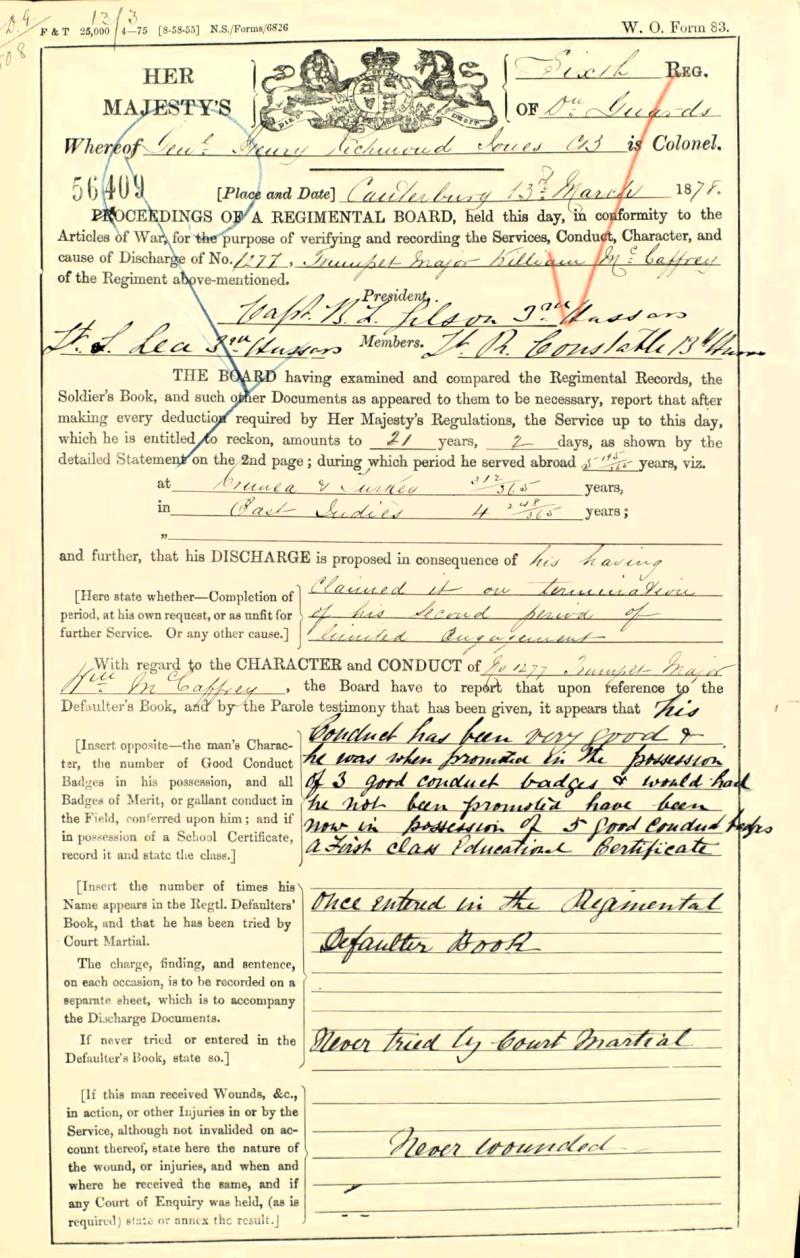 D.G
13/3
508
F & T 25,000 4—75 [8-58-55] N.S./Forms/6826
W. O. Form 83.
HER MAJESTY'S
Sixth REG.
OF Dn Guards
Whereof Genl. Henry Richmond Jones CB is Colonel.
56409
[Place and Date] Canterbury 13th March 1878.
PROCEEDINGS OF A REGIMENTAL BOARD, held this day, in conformity to the
Articles of War, for the purpose of verifying and recording the Services, Conduct, Character, and
cause of Discharge of No. 1277, Trumpet Major William McCaffrey
of the Regiment above-mentioned.
President.
Capt. B. L. 3rd Hussars
Lt. S. Lea 3rd Hussars Members. Lt. R. Constable 13th
THE BOARD having examined and compared the Regimental Records, the
Soldier's Book, and such other Documents as appeared to them to be necessary, report that after
making every deduction required by Her Majesty's Regulations, the Service up to this day,
which he is entitled to reckon, amounts to 21 years, 2 days, as shown by the
detailed Statement on the 2nd page; during which period he served abroad 5 195/365 years, viz.
at Crimea & Turkey 312/365 years,
in East Indies 4 248/365 years;
„
and further, that his DISCHARGE is proposed in consequence of his having
[Here state whether—Completion of
period, at his own request, or as unfit for
further Service. Or any other cause.]
Claimed it on termination
of his second period of
limited engagement
With regard to the CHARACTER and CONDUCT of No 1277 Trumpet Major
Wm McCaffrey, the Board have to report that upon reference to the
Defaulter's Book, and by the Parole testimony that has been given, it appears that his
[Insert opposite—the man's Charac-
ter, the number of Good Conduct
Badges in his possession, and all
Badges of Merit, or gallant conduct in
the Field, conferred upon him; and if
in possession of a School Certificate,
record it and state the class.]
Conduct has been very good &
he was when promoted in the possession
of 3 good conduct badges & would had
he not been promoted have been
now in possession of 5 good conduct badges
A First class Educational Certificate
[Insert the number of times his
Name appears in the Regtl. Defaulters'
Book, and that he has been tried by
Court Martial.
The charge, finding, and sentence,
on each occasion, is to be recorded on a
separate sheet, which is to accompany
the Discharge Documents.
If never tried or entered in the
Defaulter's Book, state so.]
Once entered in the Regimental
Defaulter Book
Never tried by Court Martial
[If this man received Wounds, &c.,
in action, or other Injuries in or by the
Service, although not invalided on ac-
count thereof, state here the nature of
the wound, or injuries, and when and
where he received the same, and if
any Court of Enquiry was held, (as is
required) state or annex the result.]
Never wounded